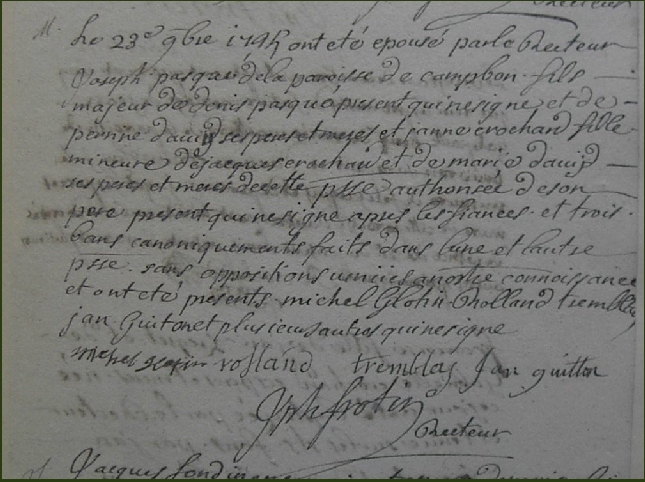 M.
Le 23e 9bre 1745 ont eté epousé par le Recteur
Joseph pasquet de la paroisse de campbon fils
majeur de denis pasque present qui ne signe et de
perrine david ses peres et meres et janne crochard fille
mineure de jacques crochard et de marie david
ses peres et meres de cette psse authorisée de son
pere present qui ne signe apres les fiances et trois
bans canoniquements faits dans lune et lautre
psse sans oppositions venües a nostre connoissance
et ont eté presents michel Rholland tremblay
jan Guiton et plusieurs autres qui ne signe
michel rolland tremblay Jan guitton
Recteur
Jacques